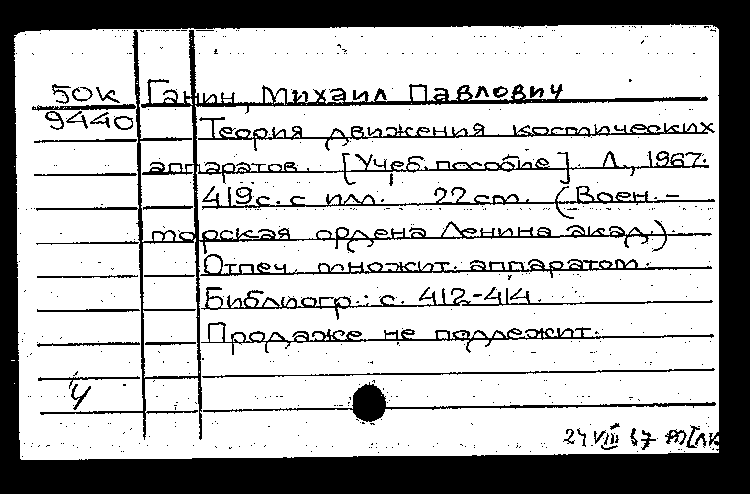 50к Ганин, Михаил Павлович
9440 Теория движения космических
аппаратов. [Учеб. пособие]. Л., 1967.
419 с. с илл. 22 см. (Воен.-
морская ордена Ленина акад.)
Отпеч. множит. аппаратом.
Библиогр.: с. 412-414.
Продаже не подлежит.
У
24 VIII 67